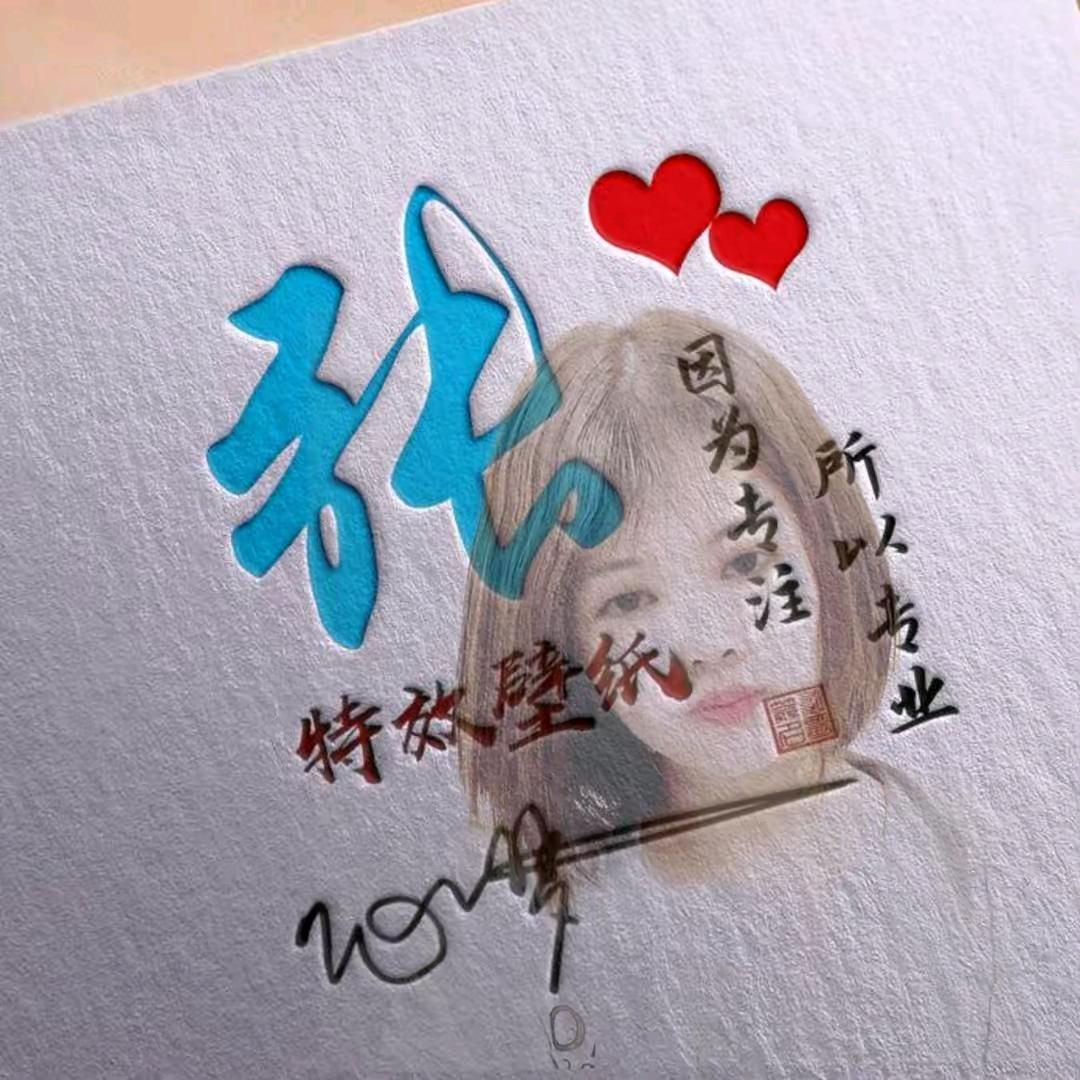 张
因为专注
所以专业
特效壁纸